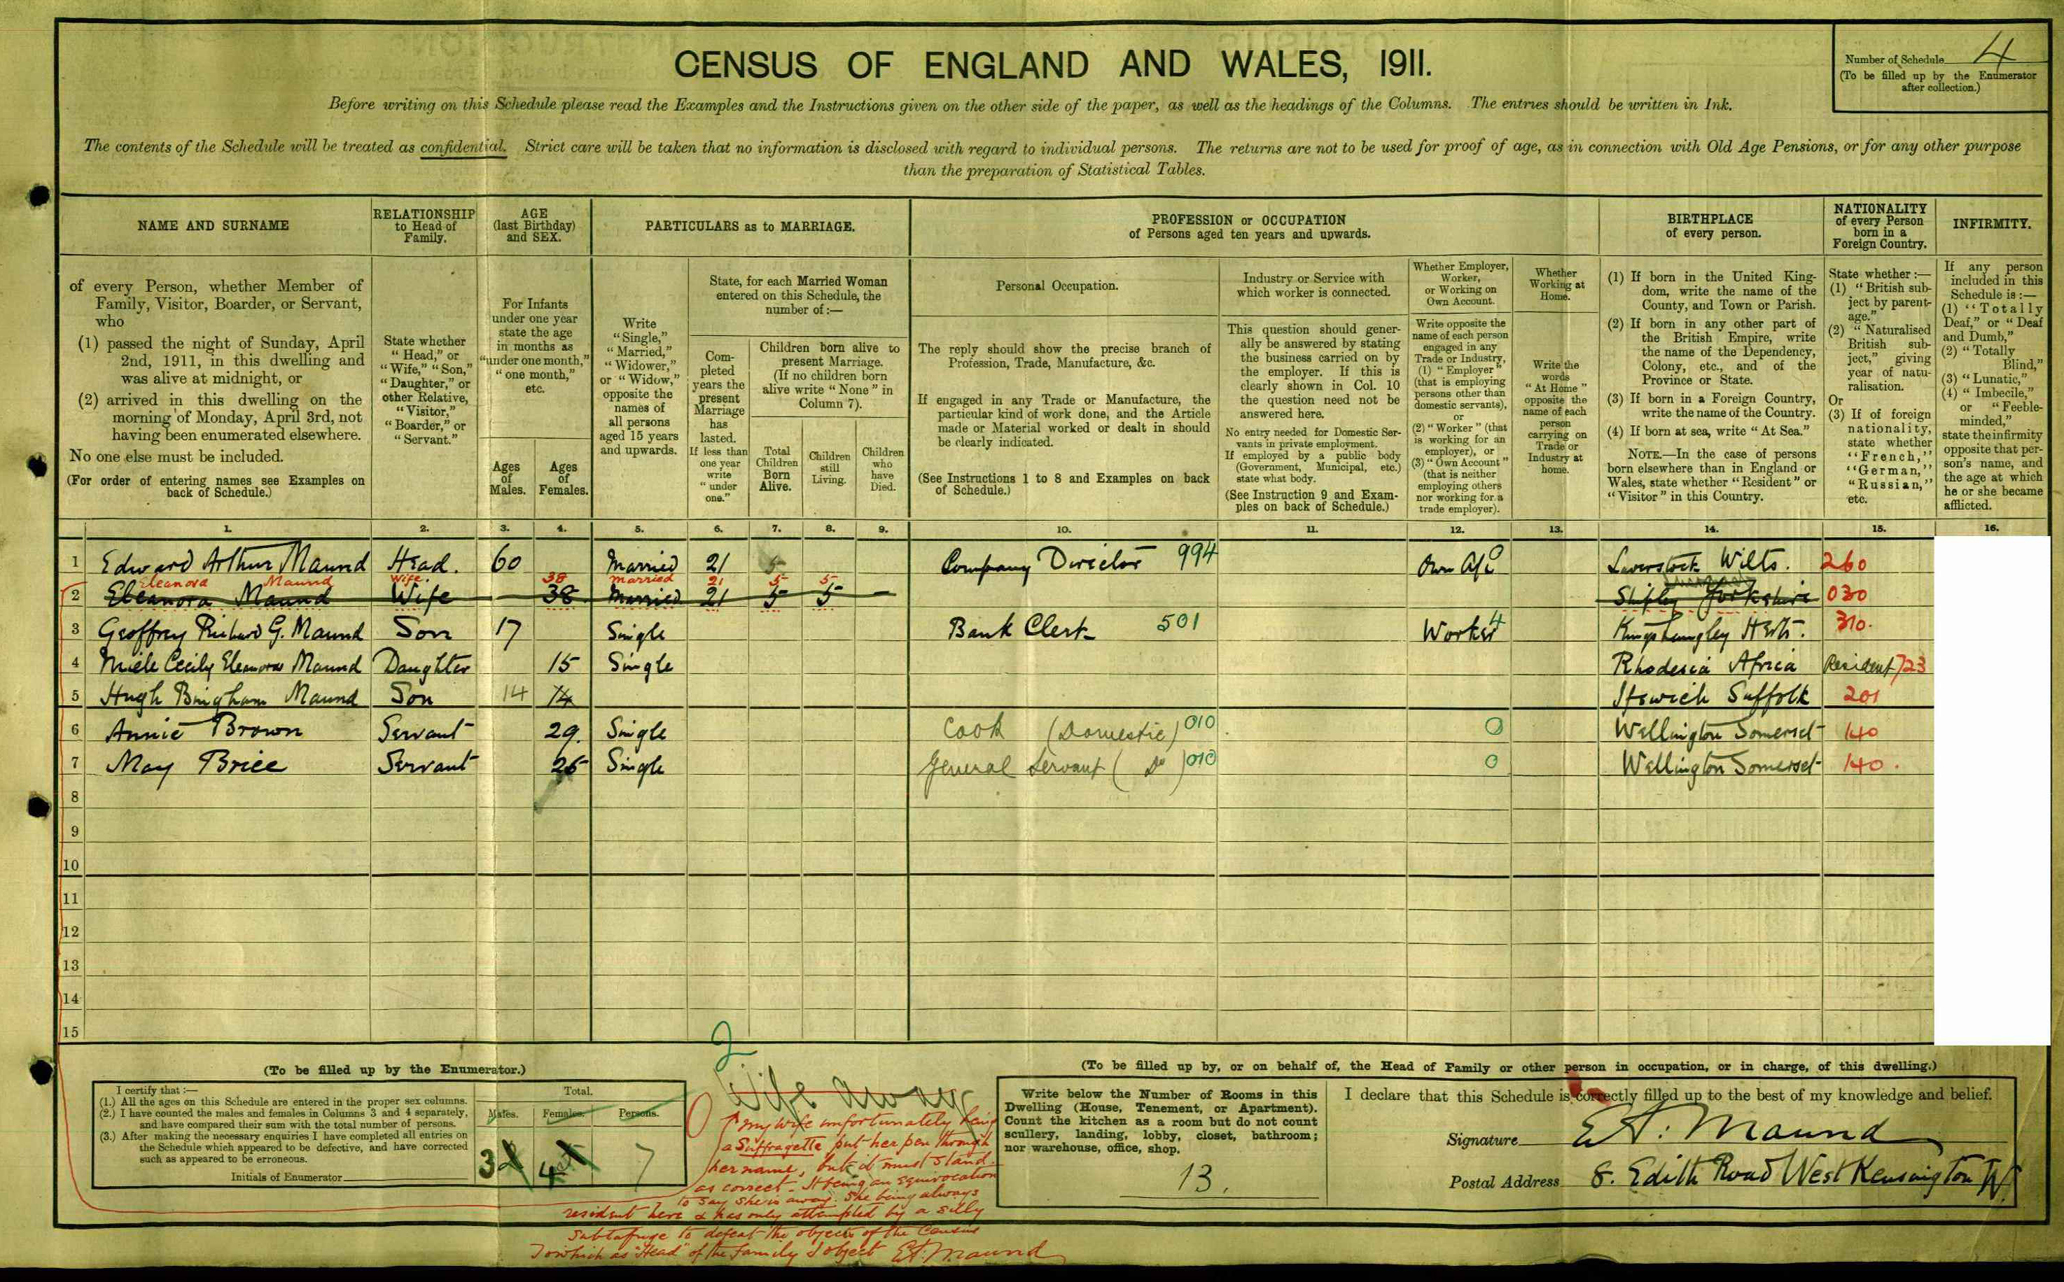 CENSUS OF ENGLAND AND WALES, 1911.
Number of Schedule 4
(To be filled up by the Enumerator
after collection.)
Before writing on this Schedule please read the Examples and the Instructions given on the other side of the paper, as well as the headings of the Columns. The entries should be written in Ink.
The contents of the Schedule will be treated as confidential. Strict care will be taken that no information is disclosed with regard to individual persons. The returns are not to be used for proof of age, as in connection with Old Age Pensions, or for any other purpose
than the preparation of Statistical Tables.
NAME AND SURNAME
of every Person, whether Member of
Family, Visitor, Boarder, or Servant,
who
(1) passed the night of Sunday, April
2nd, 1911, in this dwelling and
was alive at midnight, or
(2) arrived in this dwelling on the
morning of Monday, April 3rd, not
having been enumerated elsewhere.
No one else must be included.
(For order of entering names see Examples on
back of Schedule.)
RELATIONSHIP
to Head of
Family.
State whether
"Head," or
"Wife," "Son,"
"Daughter," or
other Relative,
"Visitor,"
"Boarder," or
"Servant."
AGE
(last Birthday)
and SEX.
For Infants
under one year
state the age
in months as
"under one month,"
"one month,"
etc.
Ages
of
Males.
Ages
of
Females.
PARTICULARS as to MARRIAGE.
Write
"Single,"
"Married,"
"Widower,"
or "Widow,"
opposite the
names of
all persons
aged 15 years
and upwards.
State, for each Married Woman
entered on this Schedule, the
number of:—
Com-
pleted
years the
present
Marriage
has
lasted.
If less than
one year
write
"under
one."
Children born alive to
present Marriage.
(If no children born
alive write "None" in
Column 7).
Total
Children
Born
Alive.
Children
still
Living.
Children
who
have
Died.
PROFESSION or OCCUPATION
of Persons aged ten years and upwards.
Personal Occupation.
The reply should show the precise branch of
Profession, Trade, Manufacture, &c.
If engaged in any Trade or Manufacture, the
particular kind of work done, and the Article
made or Material worked or dealt in should
be clearly indicated.
(See Instructions 1 to 8 and Examples on back
of Schedule.)
Industry or Service with
which worker is connected.
This question should gener-
ally be answered by stating
the business carried on by
the employer. If this is
clearly shown in Col. 10
the question need not be
answered here.
No entry needed for Domestic Ser-
vants in private employment.
If employed by a public body
(Government, Municipal, etc.)
state what body.
(See Instruction 9 and Exam-
ples on back of Schedule.)
Whether Employer,
Worker,
or Working on
Own Account.
Write opposite the
name of each person
engaged in any
Trade or Industry,
(1) "Employer"
(that is employing
persons other than
domestic servants),
or
(2) "Worker" (that
is working for an
employer), or
(3) "Own Account"
(that is neither
employing others
nor working for a
trade employer).
Whether
Working at
Home.
Write the
words
"At Home"
opposite the
name of each
person
carrying on
Trade or
Industry at
home.
BIRTHPLACE
of every person.
(1) If born in the United King-
dom, write the name of the
County, and Town or Parish.
(2) If born in any other part of
the British Empire, write
the name of the Dependency,
Colony, etc., and of the
Province or State.
(3) If born in a Foreign Country,
write the name of the Country.
(4) If born at sea, write "At Sea."
NOTE.—In the case of persons
born elsewhere than in England or
Wales, state whether "Resident" or
"Visitor" in this Country.
NATIONALITY
of every Person
born in a
Foreign Country.
State whether:—
(1) "British sub-
ject by parent-
age."
(2) "Naturalised
British sub-
ject," giving
year of natu-
ralisation.
Or
(3) If of foreign
nationality,
state whether
"French,"
"German,"
"Russian,"
etc.
INFIRMITY.
If any person
included in this
Schedule is:—
(1) "Totally
Deaf," or "Deaf
and Dumb,"
(2) "Totally
Blind,"
(3) "Lunatic,"
(4) "Imbecile,"
or "Feeble-
minded,"
state the infirmity
opposite that per-
son's name, and
the age at which
he or she became
afflicted.
1. 2. 3. 4. 5. 6. 7. 8. 9. 10. 11. 12. 13. 14. 15. 16.
1 Edward Arthur Maund Head. 60 Married 21 5 Company Director 994 Own A/c 0 Laverstock Wilts. 260
Eleanora Maund Wife. 38 Married 21 5 5
2 Eleanora Maund Wife 38 Married 21 5 5 — Shipley Yorkshire 030
3 Geoffrey Richard G. Maund Son 17 Single Bank Clerk 501 Worker 4 Kings Langley Herts. 310.
4 Cecily Eleanora Maund Daughter 15 Single Rhodesia Africa Resident 723
5 Hugh Bingham Maund Son 14 14 Ipswich Suffolk 201
6 Annie Brown Servant 29. Single Cook (Domestic) 010 0 Wellington Somerset 140
7 May Brice Servant 25 Single General Servant (Do) 010 0 Wellington Somerset 140.
8
9
10
11
12
13
14
15
(To be filled up by the Enumerator.)
I certify that:—
(1.) All the ages on this Schedule are entered in the proper sex columns.
(2.) I have counted the males and females in Columns 3 and 4 separately,
and have compared their sum with the total number of persons.
(3.) After making the necessary enquiries I have completed all entries on
the Schedule which appeared to be defective, and have corrected
such as appeared to be erroneous.
Initials of Enumerator
Total.
Males. Females. Persons.
3 4 7
2
Wife away
my wife unfortunately being
a Suffragette put her pen through
her name, but it must stand
as correct. It being an equivocation
to say she is away. She being always
resident here & has only attempted by a silly
subtafuge to defeat the object of the Census
To which as "Head" of the Family I object E A. Maund
(To be filled up by, or on behalf of, the Head of Family or other person in occupation, or in charge, of this dwelling.)
Write below the Number of Rooms in this
Dwelling (House, Tenement, or Apartment).
Count the kitchen as a room but do not count
scullery, landing, lobby, closet, bathroom;
nor warehouse, office, shop.
13.
I declare that this Schedule is correctly filled up to the best of my knowledge and belief.
Signature E A. Maund
Postal Address 8. Edith Road West Kensington W.